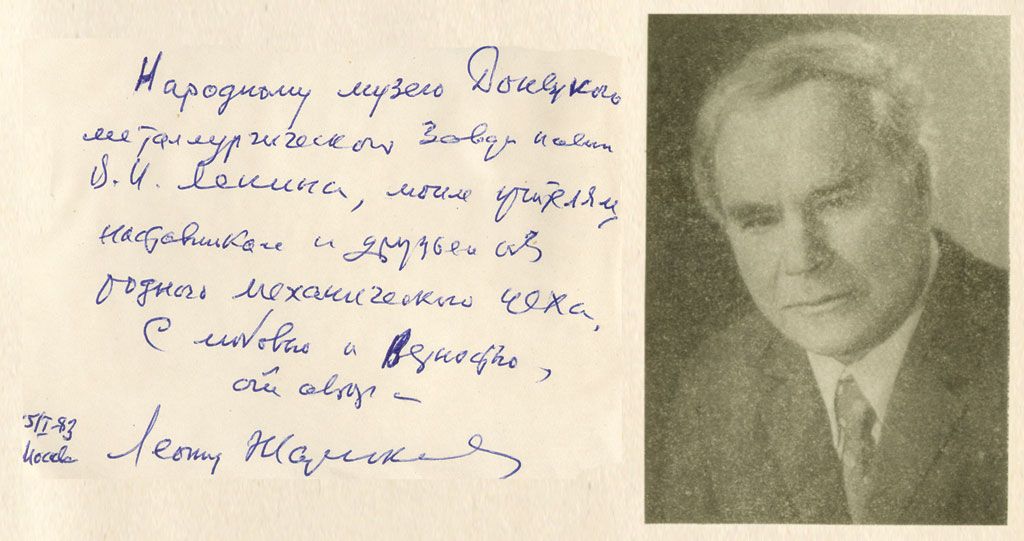 Народному музею Донецкого
металлургического завода имени
В.И. Ленина, моим учителям,
наставникам и друзьям из
родного механического цеха.
С любовью и верностью,
от автора –
5/I-83
Москва
Леонид Жариков